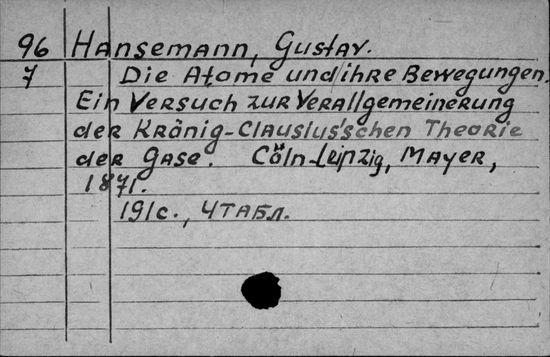 96 Hansemann, Gustav.
7 Die Atome und ihre Bewegungen.
Ein Versuch zur Verallgemeinerung
der Krönig-Clausius'schen Theorie
der Gase. Cöln-Leipzig, Mayer,
1871.
191 c., 4 табл.